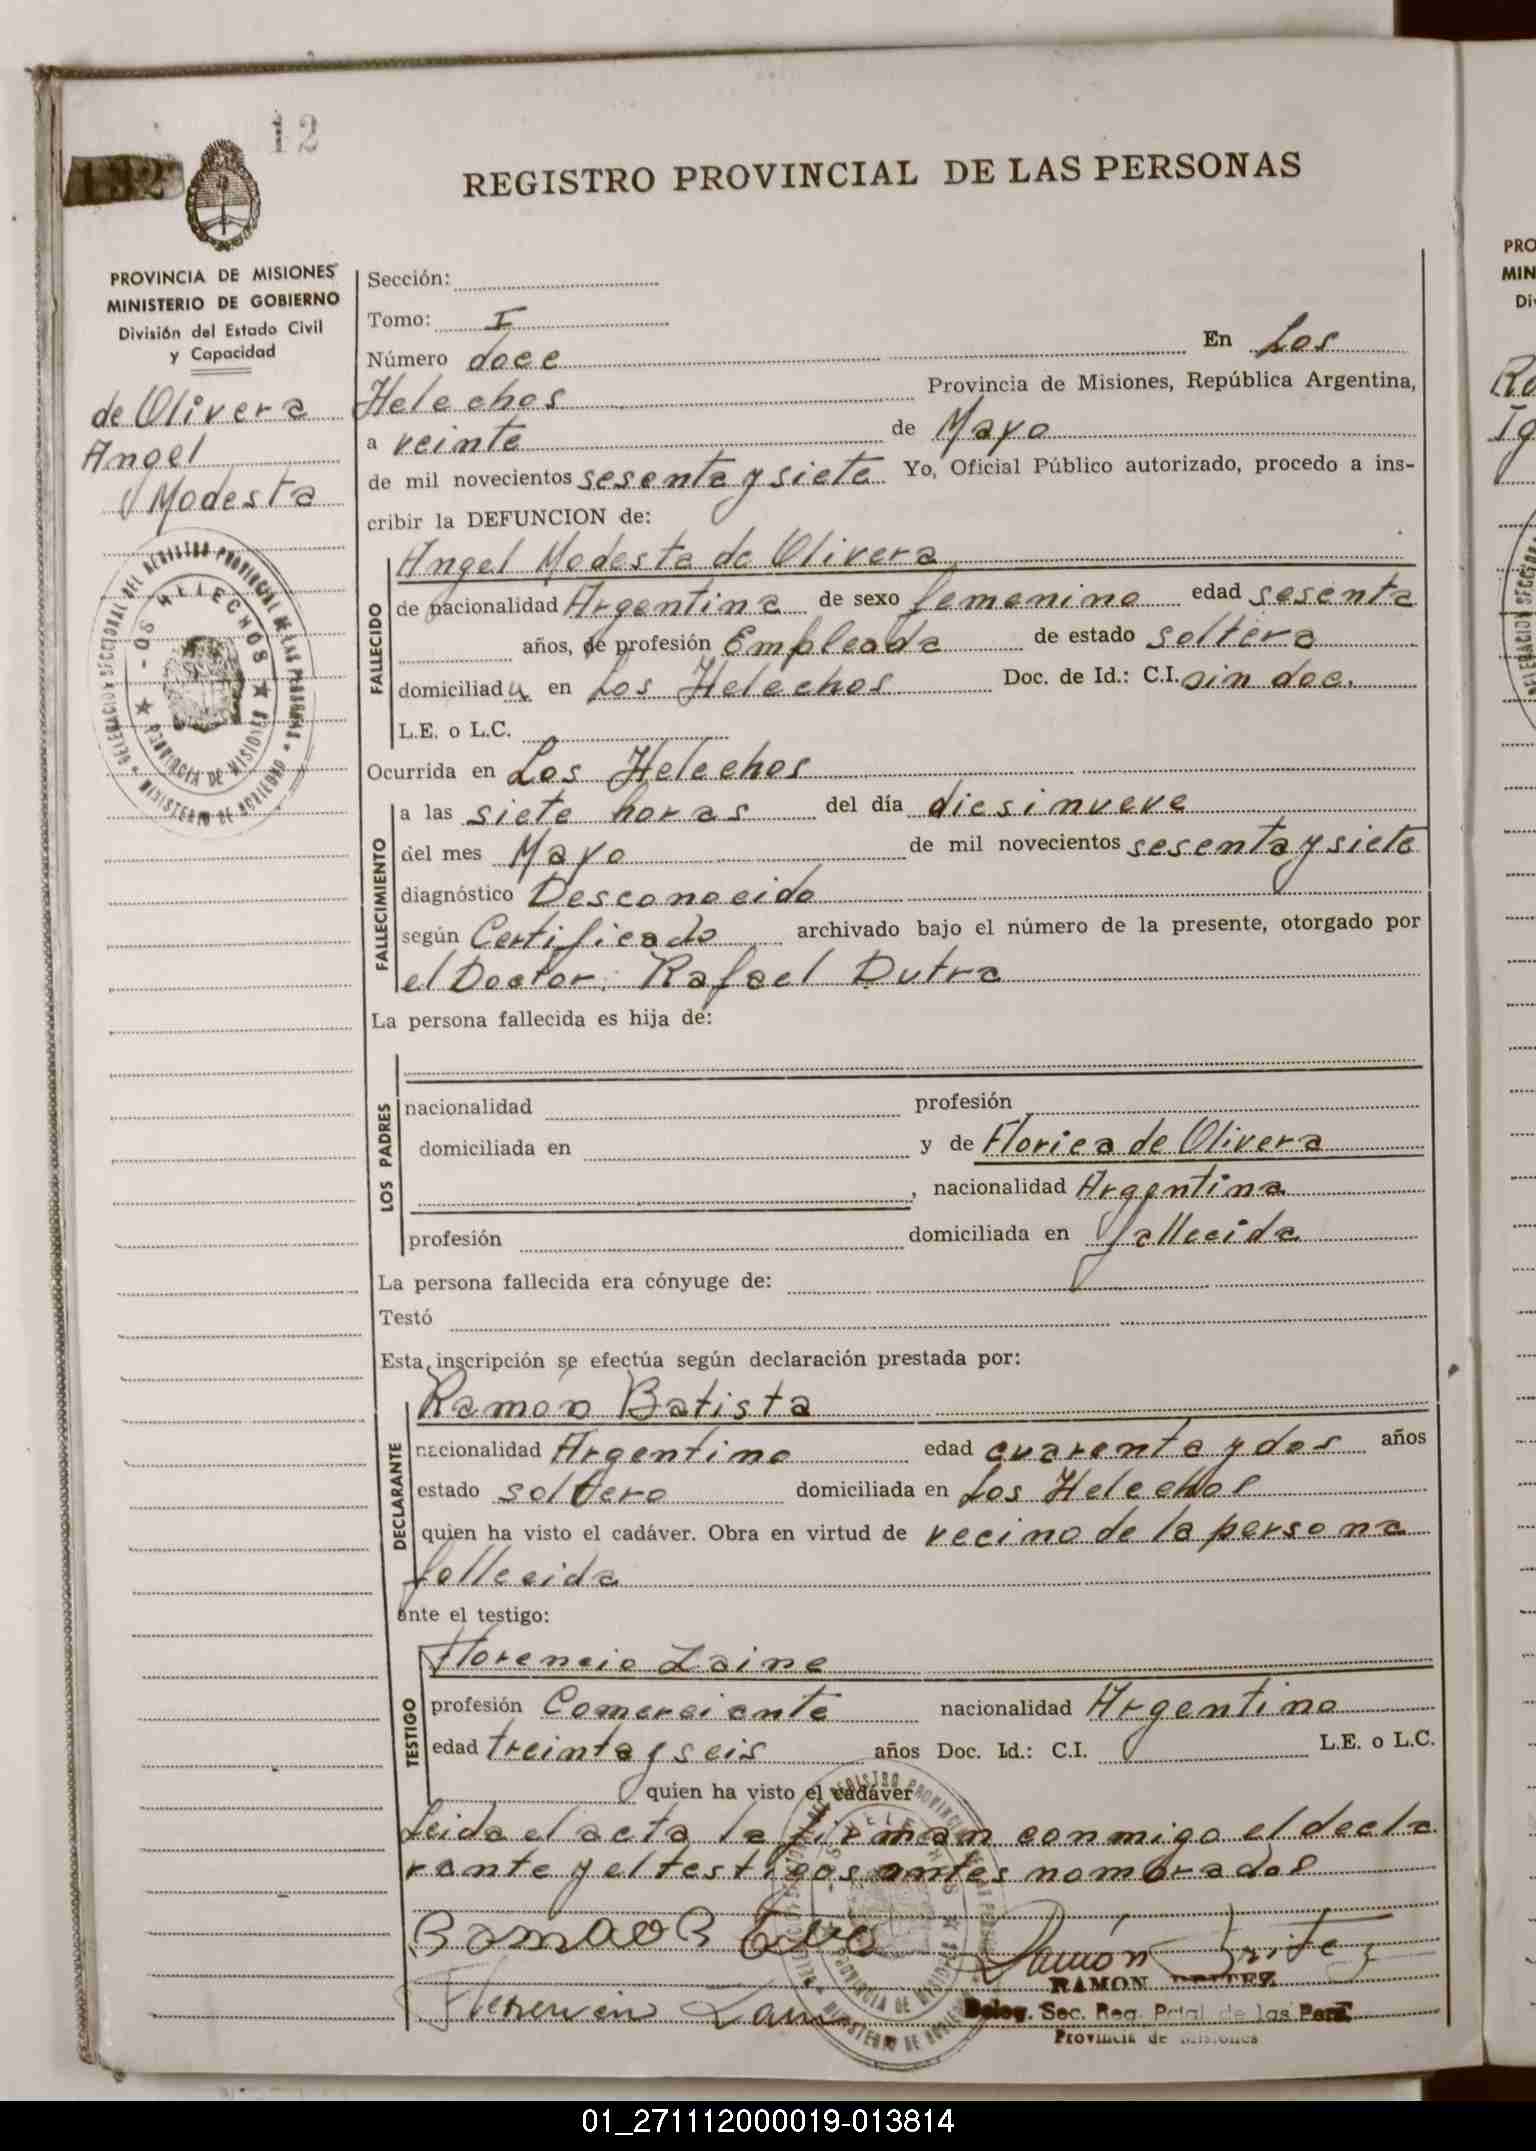 12
132
REGISTRO PROVINCIAL DE LAS PERSONAS
PROVINCIA DE MISIONES
MINISTERIO DE GOBIERNO
División del Estado Civil
y Capacidad
de Olivera
Angel
Modesta
DELEGACION SECCIONAL DEL REGISTRO PROVINCIAL DE LAS PERSONAS
LOS HELECHOS
PROVINCIA DE MISIONES
MINISTERIO DE GOBIERNO
Sección:
Tomo: I
Número doce En Los
Helechos Provincia de Misiones, República Argentina,
a veinte de Mayo
de mil novecientos sesenta y siete Yo, Oficial Público autorizado, procedo a ins-
cribir la DEFUNCION de:
FALLECIDO
Angel Modesta de Olivera
de nacionalidad Argentina de sexo femenino edad sesenta
años, de profesión Empleada de estado soltera
domiciliada en Los Helechos Doc. de Id.: C.I. sin doc.
L.E. o L.C.
Ocurrida en Los Helechos
FALLECIMIENTO
a las siete horas del día diesinueve
del mes Mayo de mil novecientos sesenta y siete
diagnóstico Desconocido
según Certificado archivado bajo el número de la presente, otorgado por
el Doctor: Rafael Dutra
La persona fallecida es hija de:
LOS PADRES
nacionalidad profesión
domiciliada en y de Florica de Olivera
, nacionalidad Argentina
profesión domiciliada en fallecida
La persona fallecida era cónyuge de:
Testó
Esta inscripción se efectúa según declaración prestada por:
DECLARANTE
Ramón Batista
nacionalidad Argentino edad cuarenta y dos años
estado soltero domiciliada en Los Helechos
quien ha visto el cadáver. Obra en virtud de vecino de la persona
fallecida
ante el testigo:
TESTIGO
Florencio Laine
profesión Comerciante nacionalidad Argentino
edad treinta y seis años Doc. Id.: C.I. L.E. o L.C.
quien ha visto el cadáver
Leida el acta la firman conmigo el decla
rante y el testigos antes nombrados
Ramón Britez
RAMON BRITEZ
Deleg. Sec. Reg. Pcial. de las Pers.
Provincia de Misiones
01_271112000019-013814